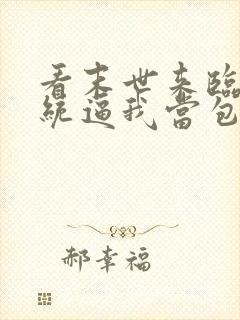 看末世来臨
統逼我當包
郝幸福